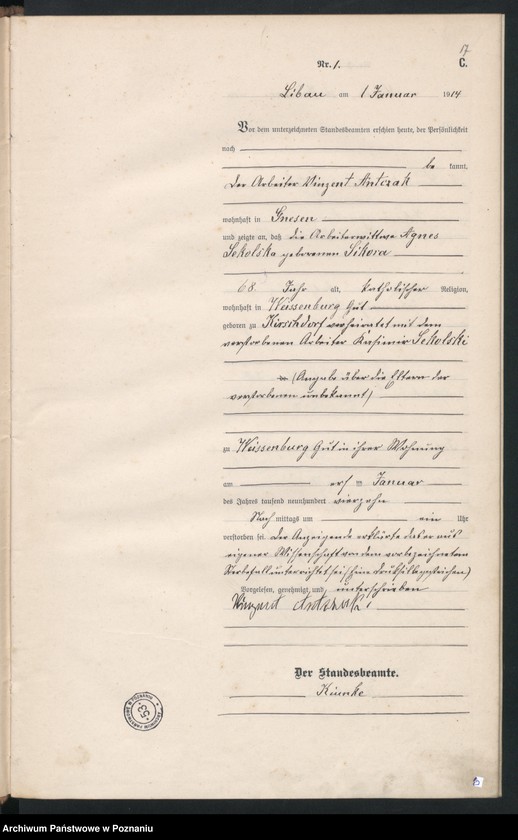 17
C.
Nr. 1.
Libau am 1 Januar 1914
Vor dem unterzeichneten Standesbeamten erschien heute, der Persönlichkeit
nach
be kannt,
der Arbeiter Vinzent Antczak
wohnhaft in Gnesen
und zeigte an, daß die Arbeiterwittwe Agnes
Sekolska geborenen Sikora
68 Jahr alt, katholischer Religion,
wohnhaft in Weissenburg Gut
geboren zu Kirschdorf verheiratet mit dem
verstorbenen Arbeiter Kasimir Sekolski
(Angabe über die Eltern der
verstorbenen unbekannt)
zu Weissenburg Gut in ihrer Wohnung
am Januar
des Jahres tausend neunhundert vierzehn
Nach mittags um ein Uhr
verstorben sei. Der Anzeigende erklärte das er aus
eigener Wissenschaft von dem vorbezeichneten
Sterbefall unterrichtet sei
Vorgelesen, genehmigt und unterschrieben
Vinzent Antczak
Der Standesbeamte.
Kiunke
53
Archiwum Państwowe w Poznaniu